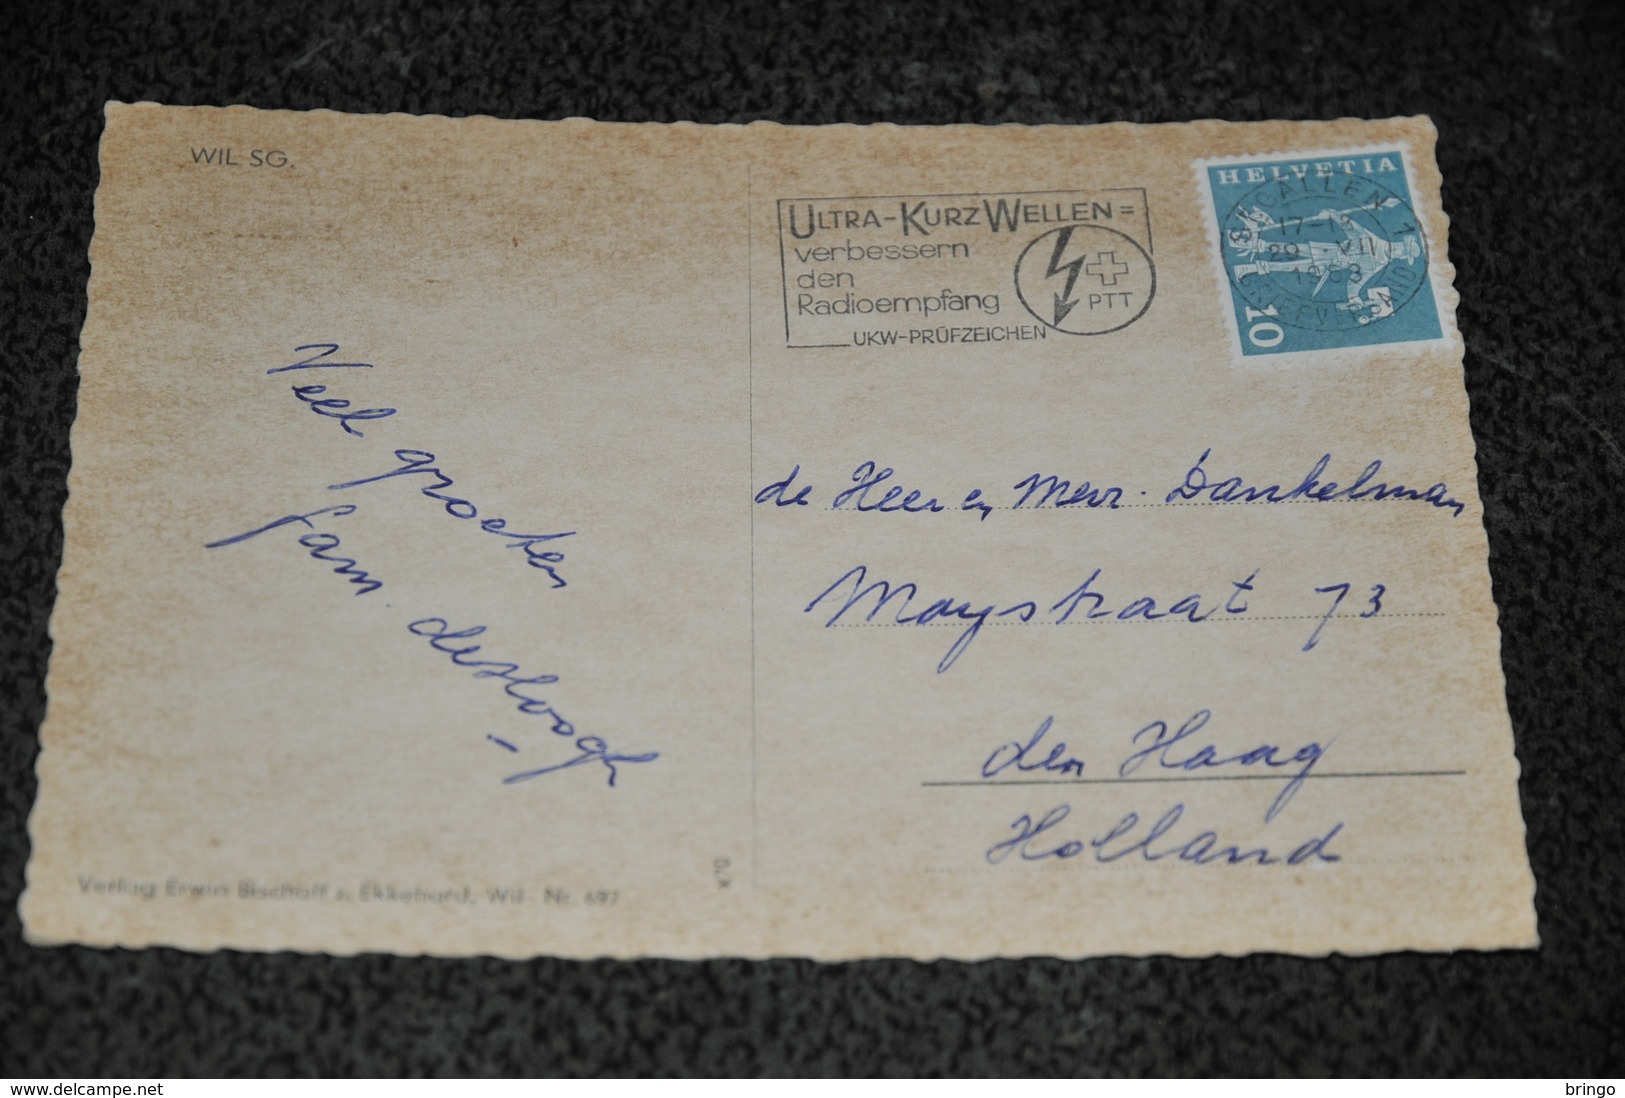 WIL SG.
ULTRA-KURZ WELLEN=
verbessern
den
Radioempfang
PTT
UKW-PRÜFZEICHEN
HELVETIA
ST. GALLEN 1
17-
29. VII
10
Veel groeten
fam
de Heer en Mevr. Dankelman
Maystraat 73
den Haag
Holland
Verlag Erwin Bischoff z. Ekkehard, Wil Nr. 697
www.delcampe.net
bringo